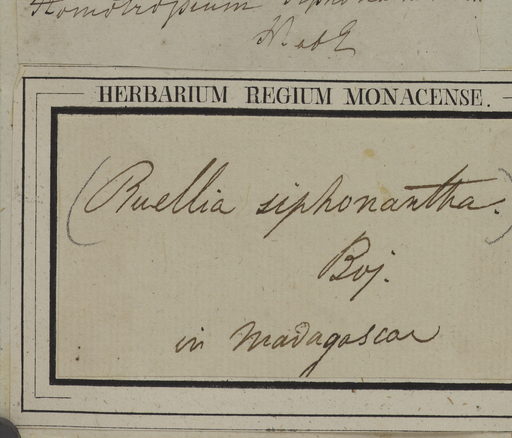 Homotropium siphonan
HERBARIUM REGIUM MONACENSE.
(Ruellia siphonantha.)
Boj.
in Madagascar